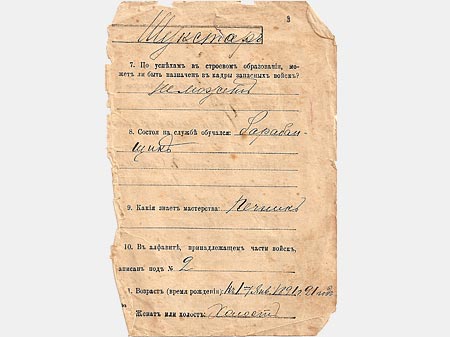 3
Шукстаръ
7. По успѣхамъ въ строевомъ образованіи, мо-
жетъ ли быть назначенъ въ кадры запасныхъ войскъ?
не можетъ
8. Состоя на службѣ обучался: Барабан-
щикъ
9. Какія знаетъ мастерства: Печникъ
10. Въ алфавитѣ, принадлежащемъ части войскъ,
аписанъ подъ № 2
1. Возрастъ (время рожденія):
Женатъ или холостъ: Холостъ